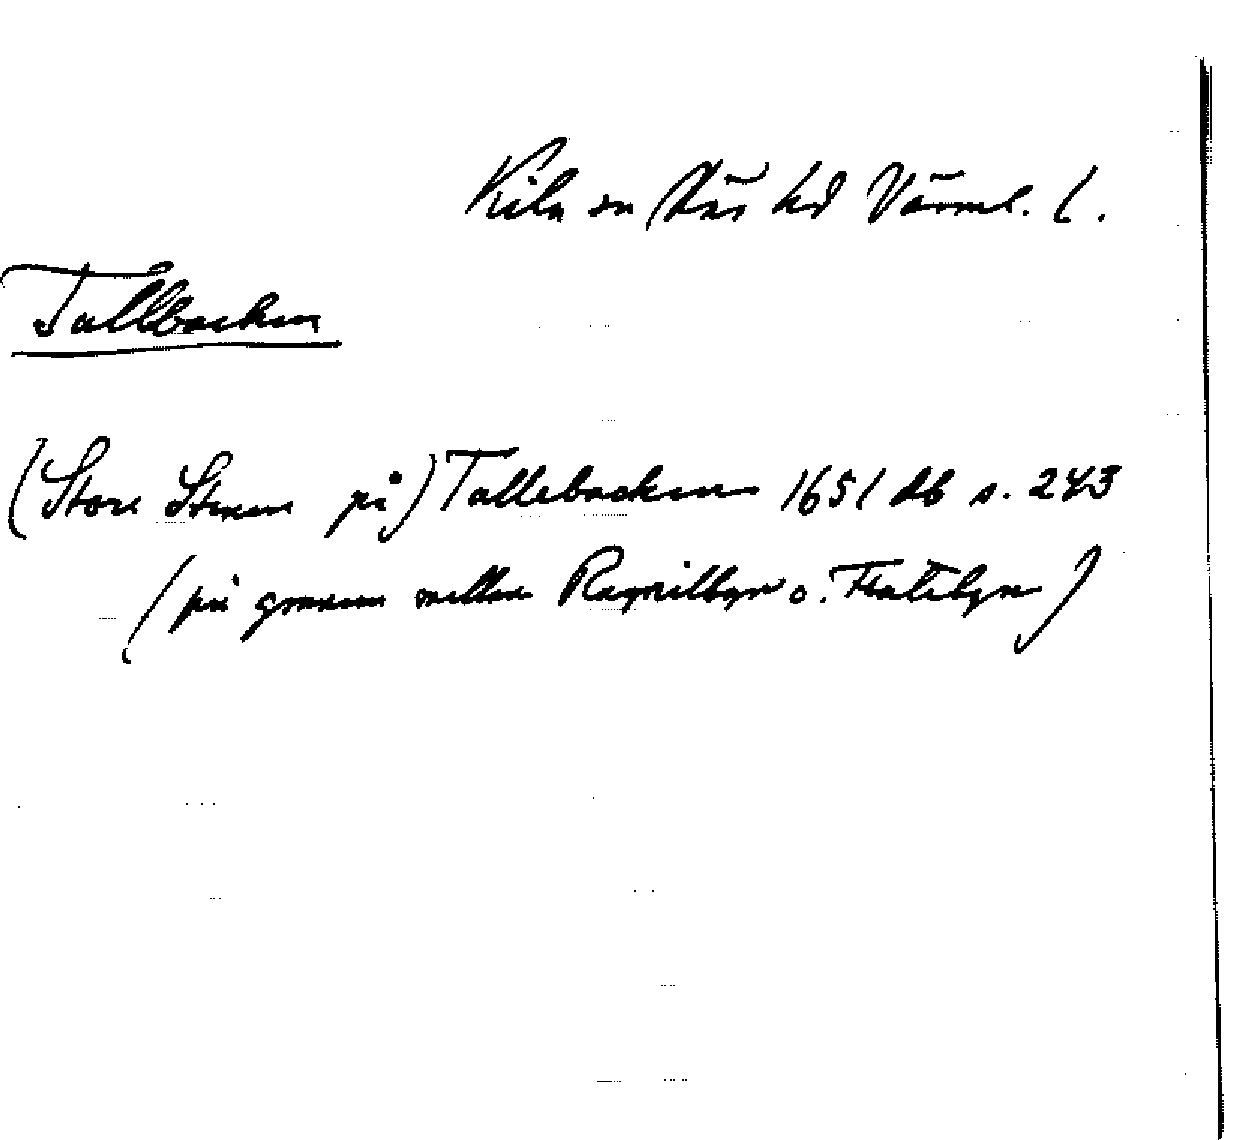 Kila sn Näs hd Värml. l.
Tallbacken
(Store Steen på) Tallebacken 1651 db s. 243
(på gränsen mellan Ragvillbyn o. Flatebyn)